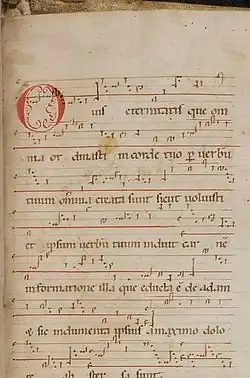 O
uis eternitatis que om
nia ordinasti in corde tuo p verbū
tuum omnia creata sunt sicut voluisti
et ipsum verbū tuum induit car nē
in formatione illa que educta ē de adam
et sic indumenta ipsius a maximo dolo
re abster sa sunt